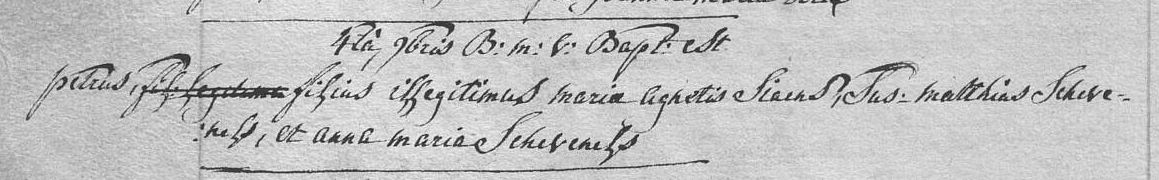 4ta, 9bris B: m: V: Bapt: est
petrus, fil: legitima filius illegitimus maria agnetis Siaens, Sus: matthias Scheve-
:nels, et anna maria Schevenels